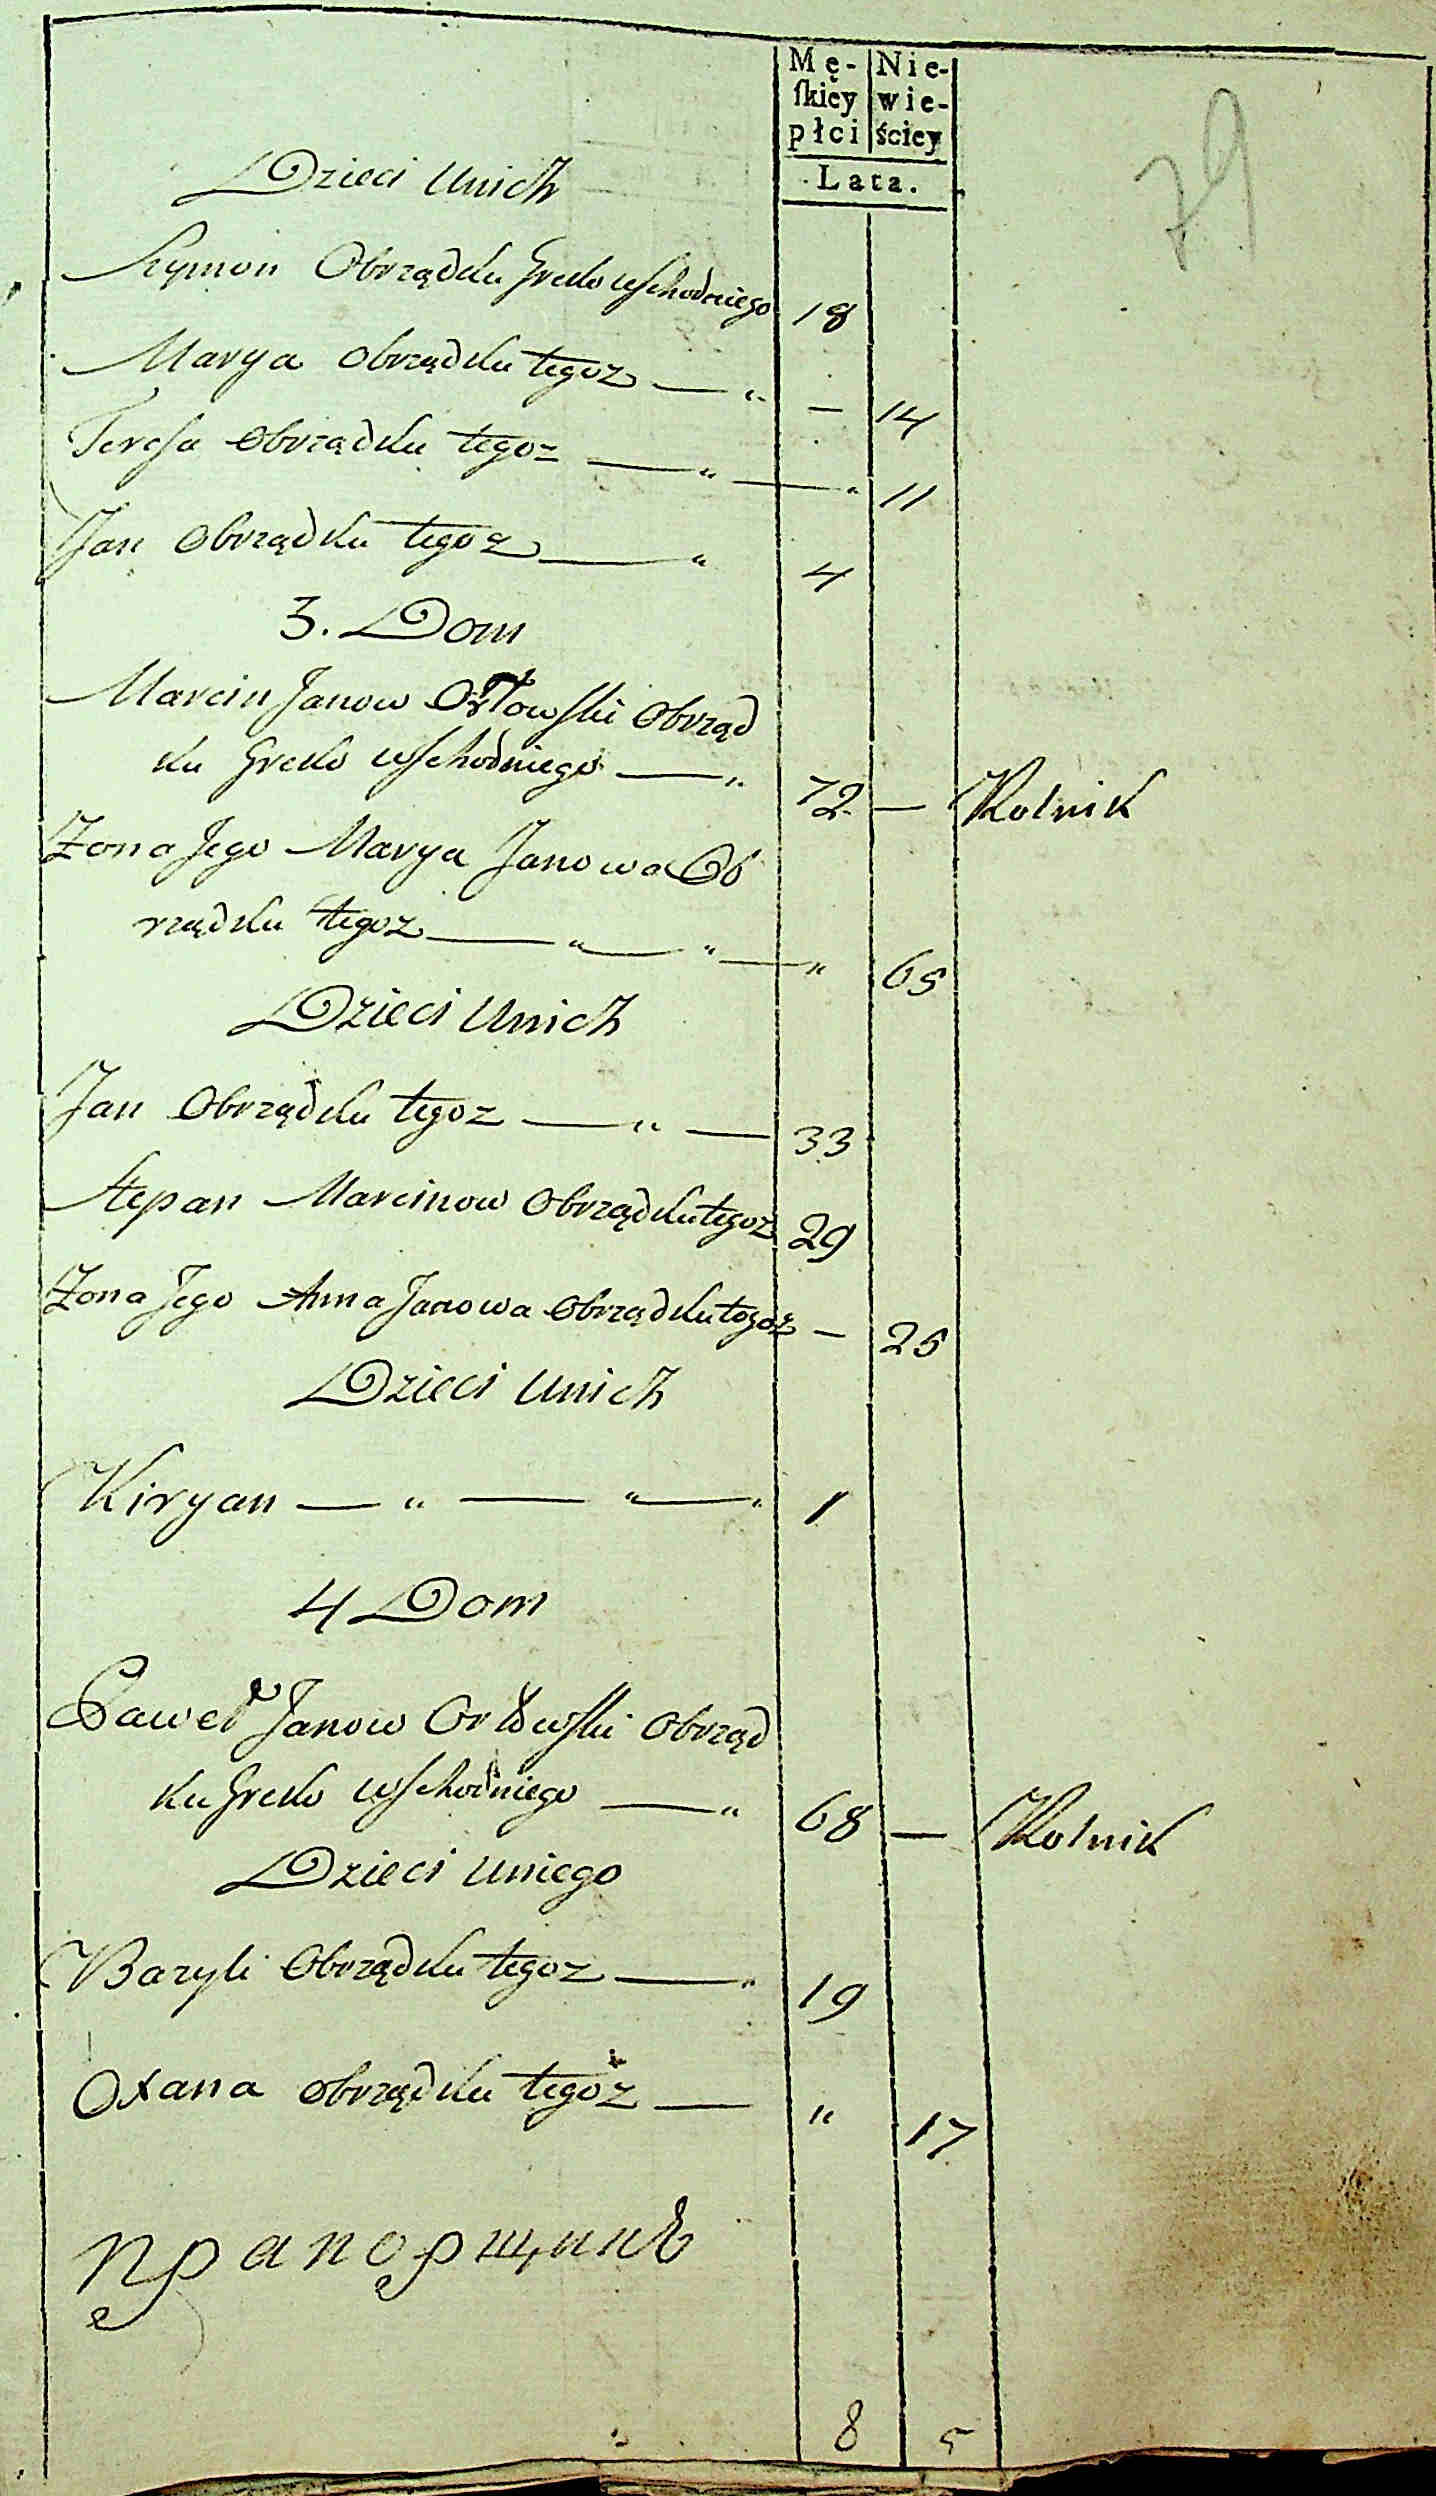 Mę- Nie-
ſkiey wie-
płci ściey
Lata.
79
Dzieci Unich
Szymon Obrządku Greko wschodniego 18
Marya Obrządku tegoz — „ — 14
Teresa Obrządku tegoz — „ — „ 11
Jan Obrządku tegoz — „ 4
3. Dom
Marcin Janow Orłowski Obrząd
ku Greko wschodniego — „ 72 — Rolnik
Zona Jego Marya Janowa Ob
rządku tegoz — „ — „ — „ 65
Dzieci Unich
Jan Obrządku tegoz — „ — 33
Stepan Marcinow Obrządku tegoz 29
Zona Jego Anna Janowa Obrządku tegoz — 25
Dzieci Unich
Kiryan — „ — „ — „ 1
4 Dom
Paweł Janow Orłowski Obrząd
ku Greko wschodniego — „ 68 — Rolnik
Dzieci Uniego
Bazyli Obrządku tegoz — „ 19
Oxana Obrządku tegoz — „ 17
прапорщикъ
8 5